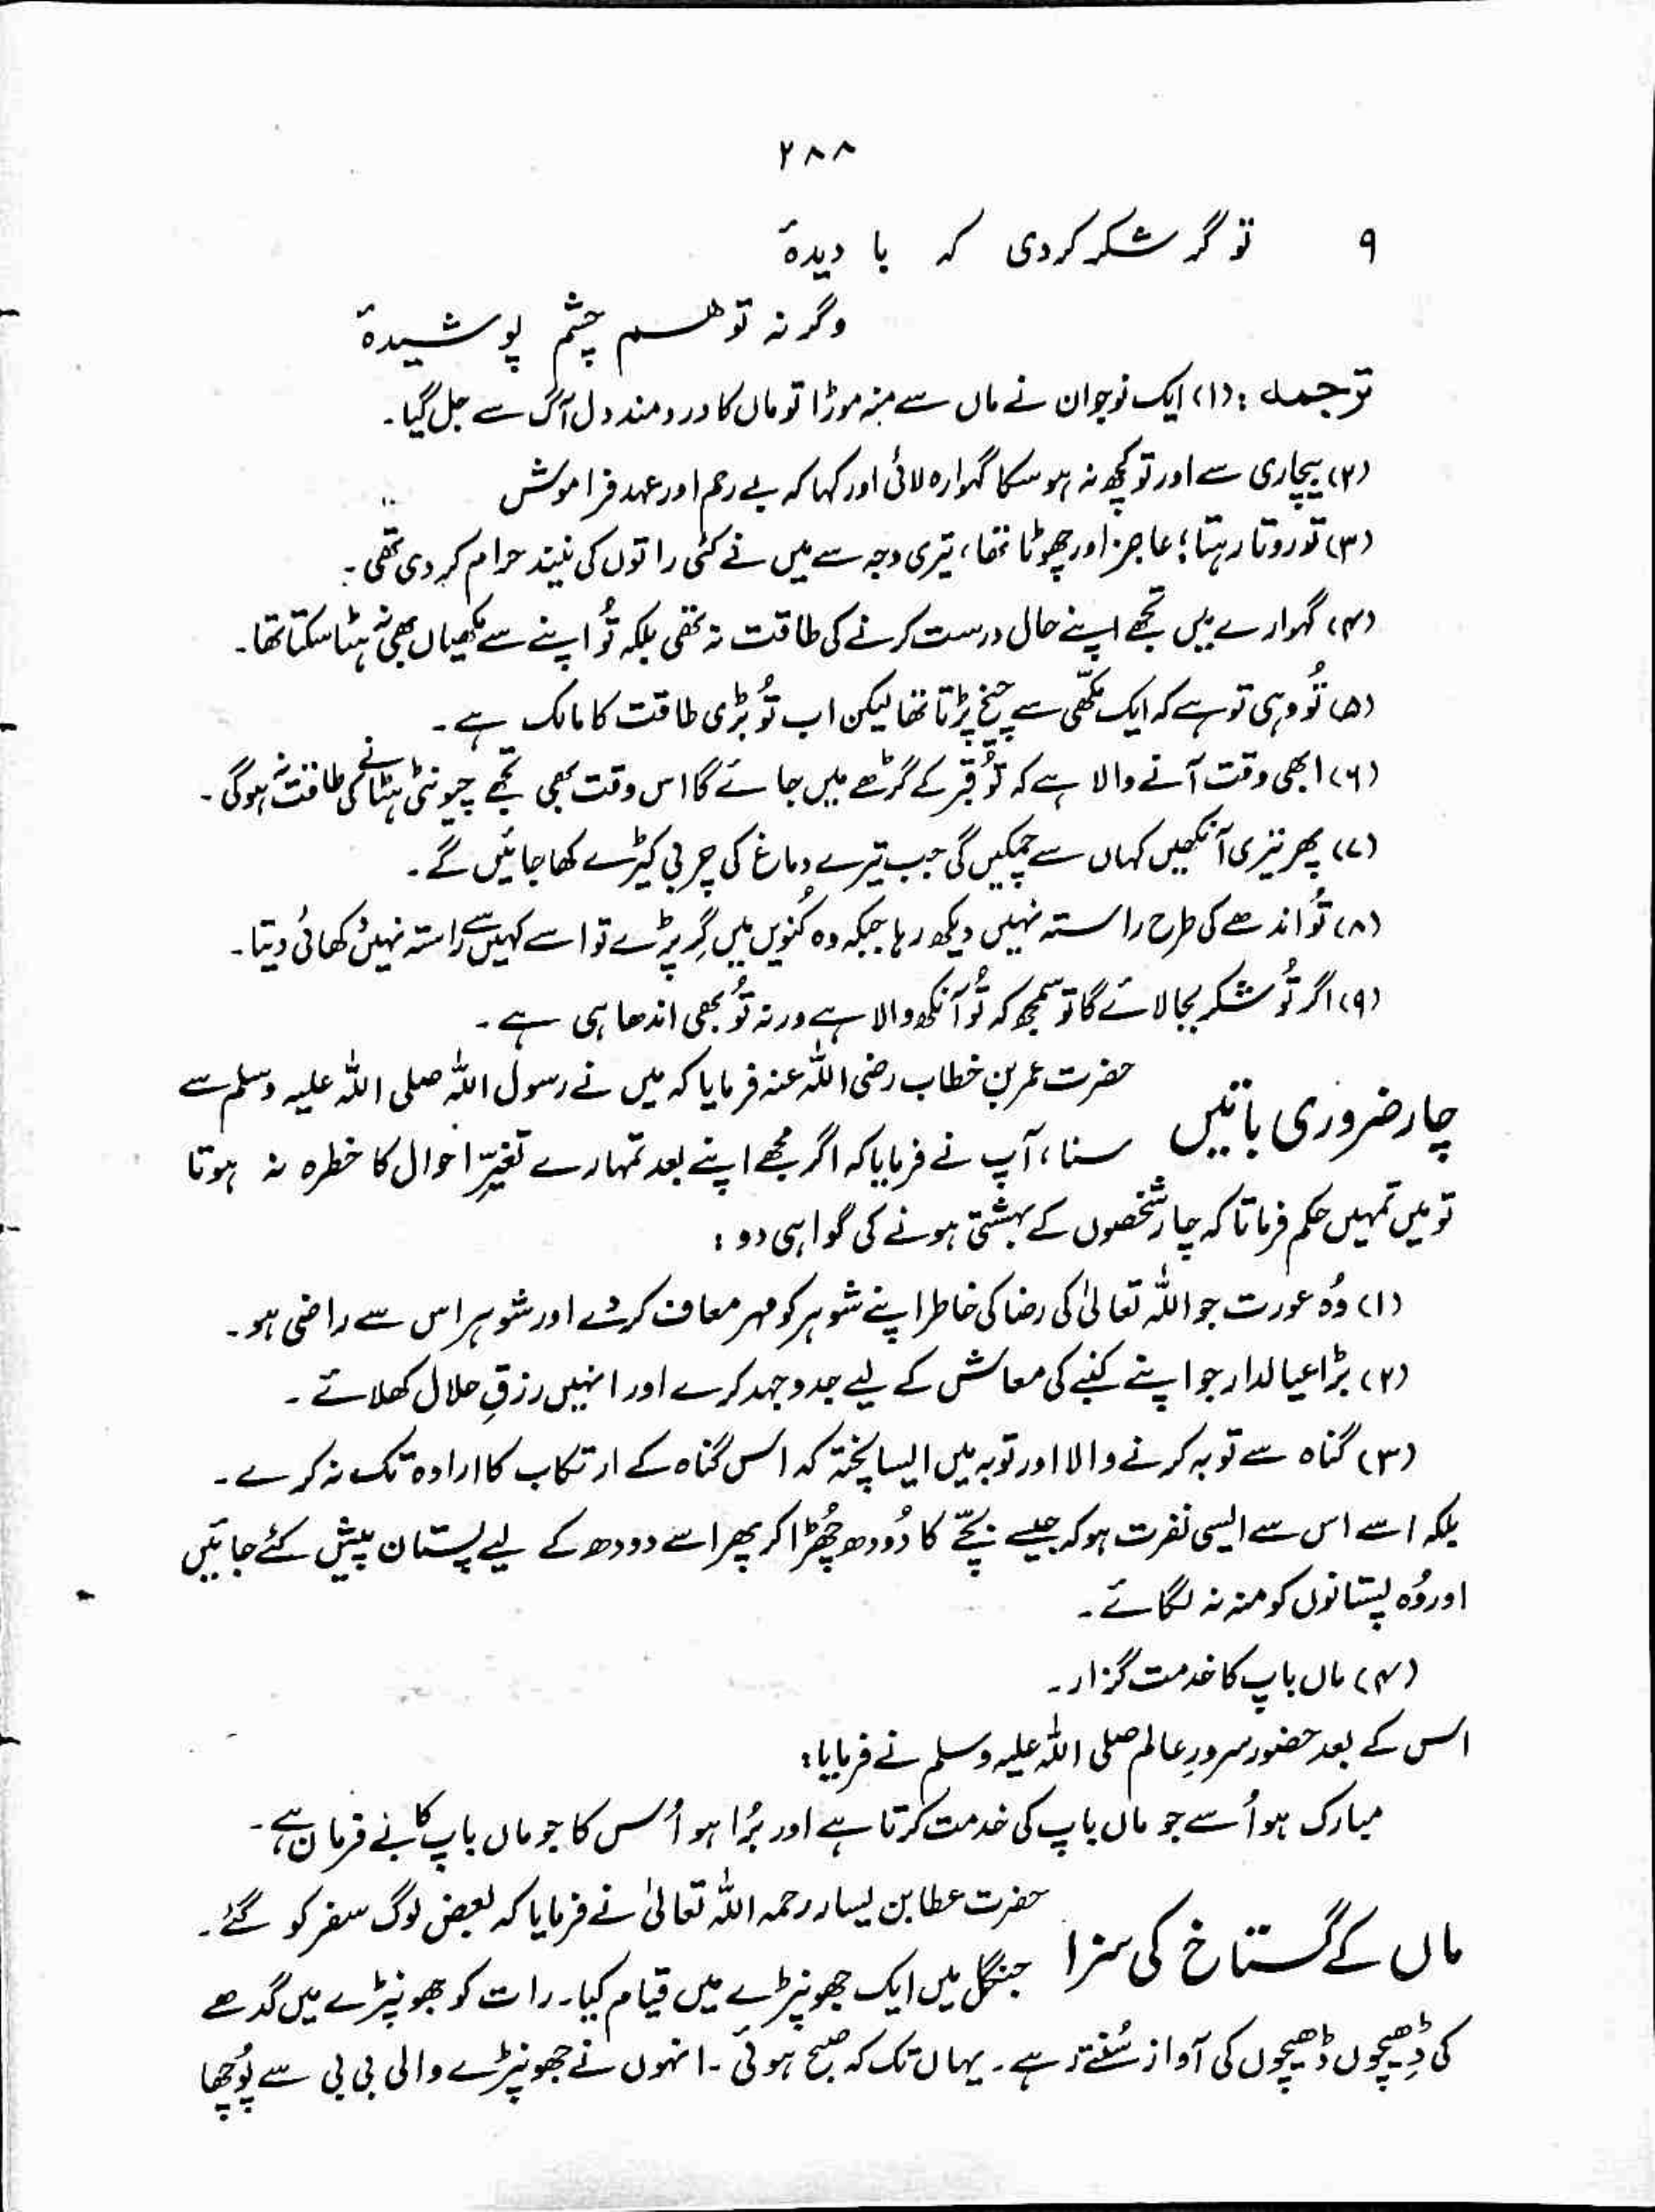 ۲۸۸
۹ تو گر شکر کردی کہ با دیدۂ
وگر نہ تو ھسم چشم پوشیدۂ
ترجمہ : (۱) ایک نوجوان نے ماں سے منہ موڑا تو ماں کا دردمند دل آگ سے جل گیا۔
(۲) بیچاری سے اور تو کچھ نہ ہو سکا گہوارہ لائی اور کہا کہ بے رحم اور عہد فراموش
(۳) تو روتا رہتا؛ عاجز اور چھوٹا تھا، تیری وجہ سے میں نے کئی راتوں کی نیند حرام کر دی تھی۔
(۴) گہوارے میں تجھے اپنے حال درست کرنے کی طاقت نہ تھی بلکہ تُو اپنے سے مکھیاں بھی نہ ہٹا سکتا تھا۔
(۵) تُو وہی تو ہے کہ ایک مکّھی سے چیخ پڑتا تھا لیکن اب تُو بڑی طاقت کا مالک ہے۔
(۶) ابھی وقت آنے والا ہے کہ تُو قبر کے گڑھے میں جائے گا اس وقت بھی تجھے چیونٹی ہٹانے کی طاقت نہ ہوگی۔
(۷) پھر تیری آنکھیں کہاں سے چمکیں گی جب تیرے دماغ کی چربی کیڑے کھا جائیں گے۔
(۸) تُو اندھے کی طرح راستہ نہیں دیکھ رہا جبکہ وہ کُنویں میں گِر پڑے تو اسے کہیں سے راستہ نہیں دکھائی دیتا۔
(۹) اگر تُو شکر بجا لائے گا تو سمجھ کہ تُو آنکھ والا ہے ورنہ تُو بھی اندھا ہی ہے۔
چار ضروری باتیں حضرت عمر بن خطاب رضی اللہ عنہ فرمایا کہ میں نے رسول اللہ صلی اللہ علیہ وسلم سے
سنا، آپ نے فرمایا کہ اگر مجھے اپنے بعد تمہارے تغیّرِ احوال کا خطرہ نہ ہوتا
تو میں تمہیں حکم فرماتا کہ چار شخصوں کے بہشتی ہونے کی گواہی دو :
(۱) وُہ عورت جو اللہ تعالیٰ کی رضا کی خاطر اپنے شوہر کو مہر معاف کر دے اور شوہر اس سے راضی ہو۔
(۲) بڑا عیالدار جو اپنے کنبے کی معاش کے لیے جدوجہد کرے اور انہیں رزقِ حلال کھلائے۔
(۳) گناہ سے توبہ کرنے والا اور توبہ میں ایسا پختہ کہ اس گناہ کے ارتکاب کا ارادہ تک نہ کرے۔
بلکہ اسے اس سے ایسی نفرت ہو کہ جیسے بچّے کا دُودھ چُھڑا کر پھر اسے دودھ کے لیے پستان پیش کئے جائیں
اور وُہ پستانوں کو منہ نہ لگائے۔
(۴) ماں باپ کا خدمت گزار۔
اس کے بعد حضور سرورِ عالم صلی اللہ علیہ وسلم نے فرمایا :
مبارک ہو اُسے جو ماں باپ کی خدمت کرتا ہے اور بُرا ہو اُس کا جو ماں باپ کا بے فرمان ہے۔
ماں کے گستاخ کی سزا حضرت عطا بن یسار رحمہ اللہ تعالیٰ نے فرمایا کہ بعض لوگ سفر کو گئے۔
جنگل میں ایک جھونپڑے میں قیام کیا۔ رات کو جھونپڑے میں گدھے
کی ڈِھیچوں ڈھیچوں کی آواز سُنتے رہے۔ یہاں تک کہ صبح ہوئی۔ انہوں نے جھونپڑے والی بی بی سے پُوچھا